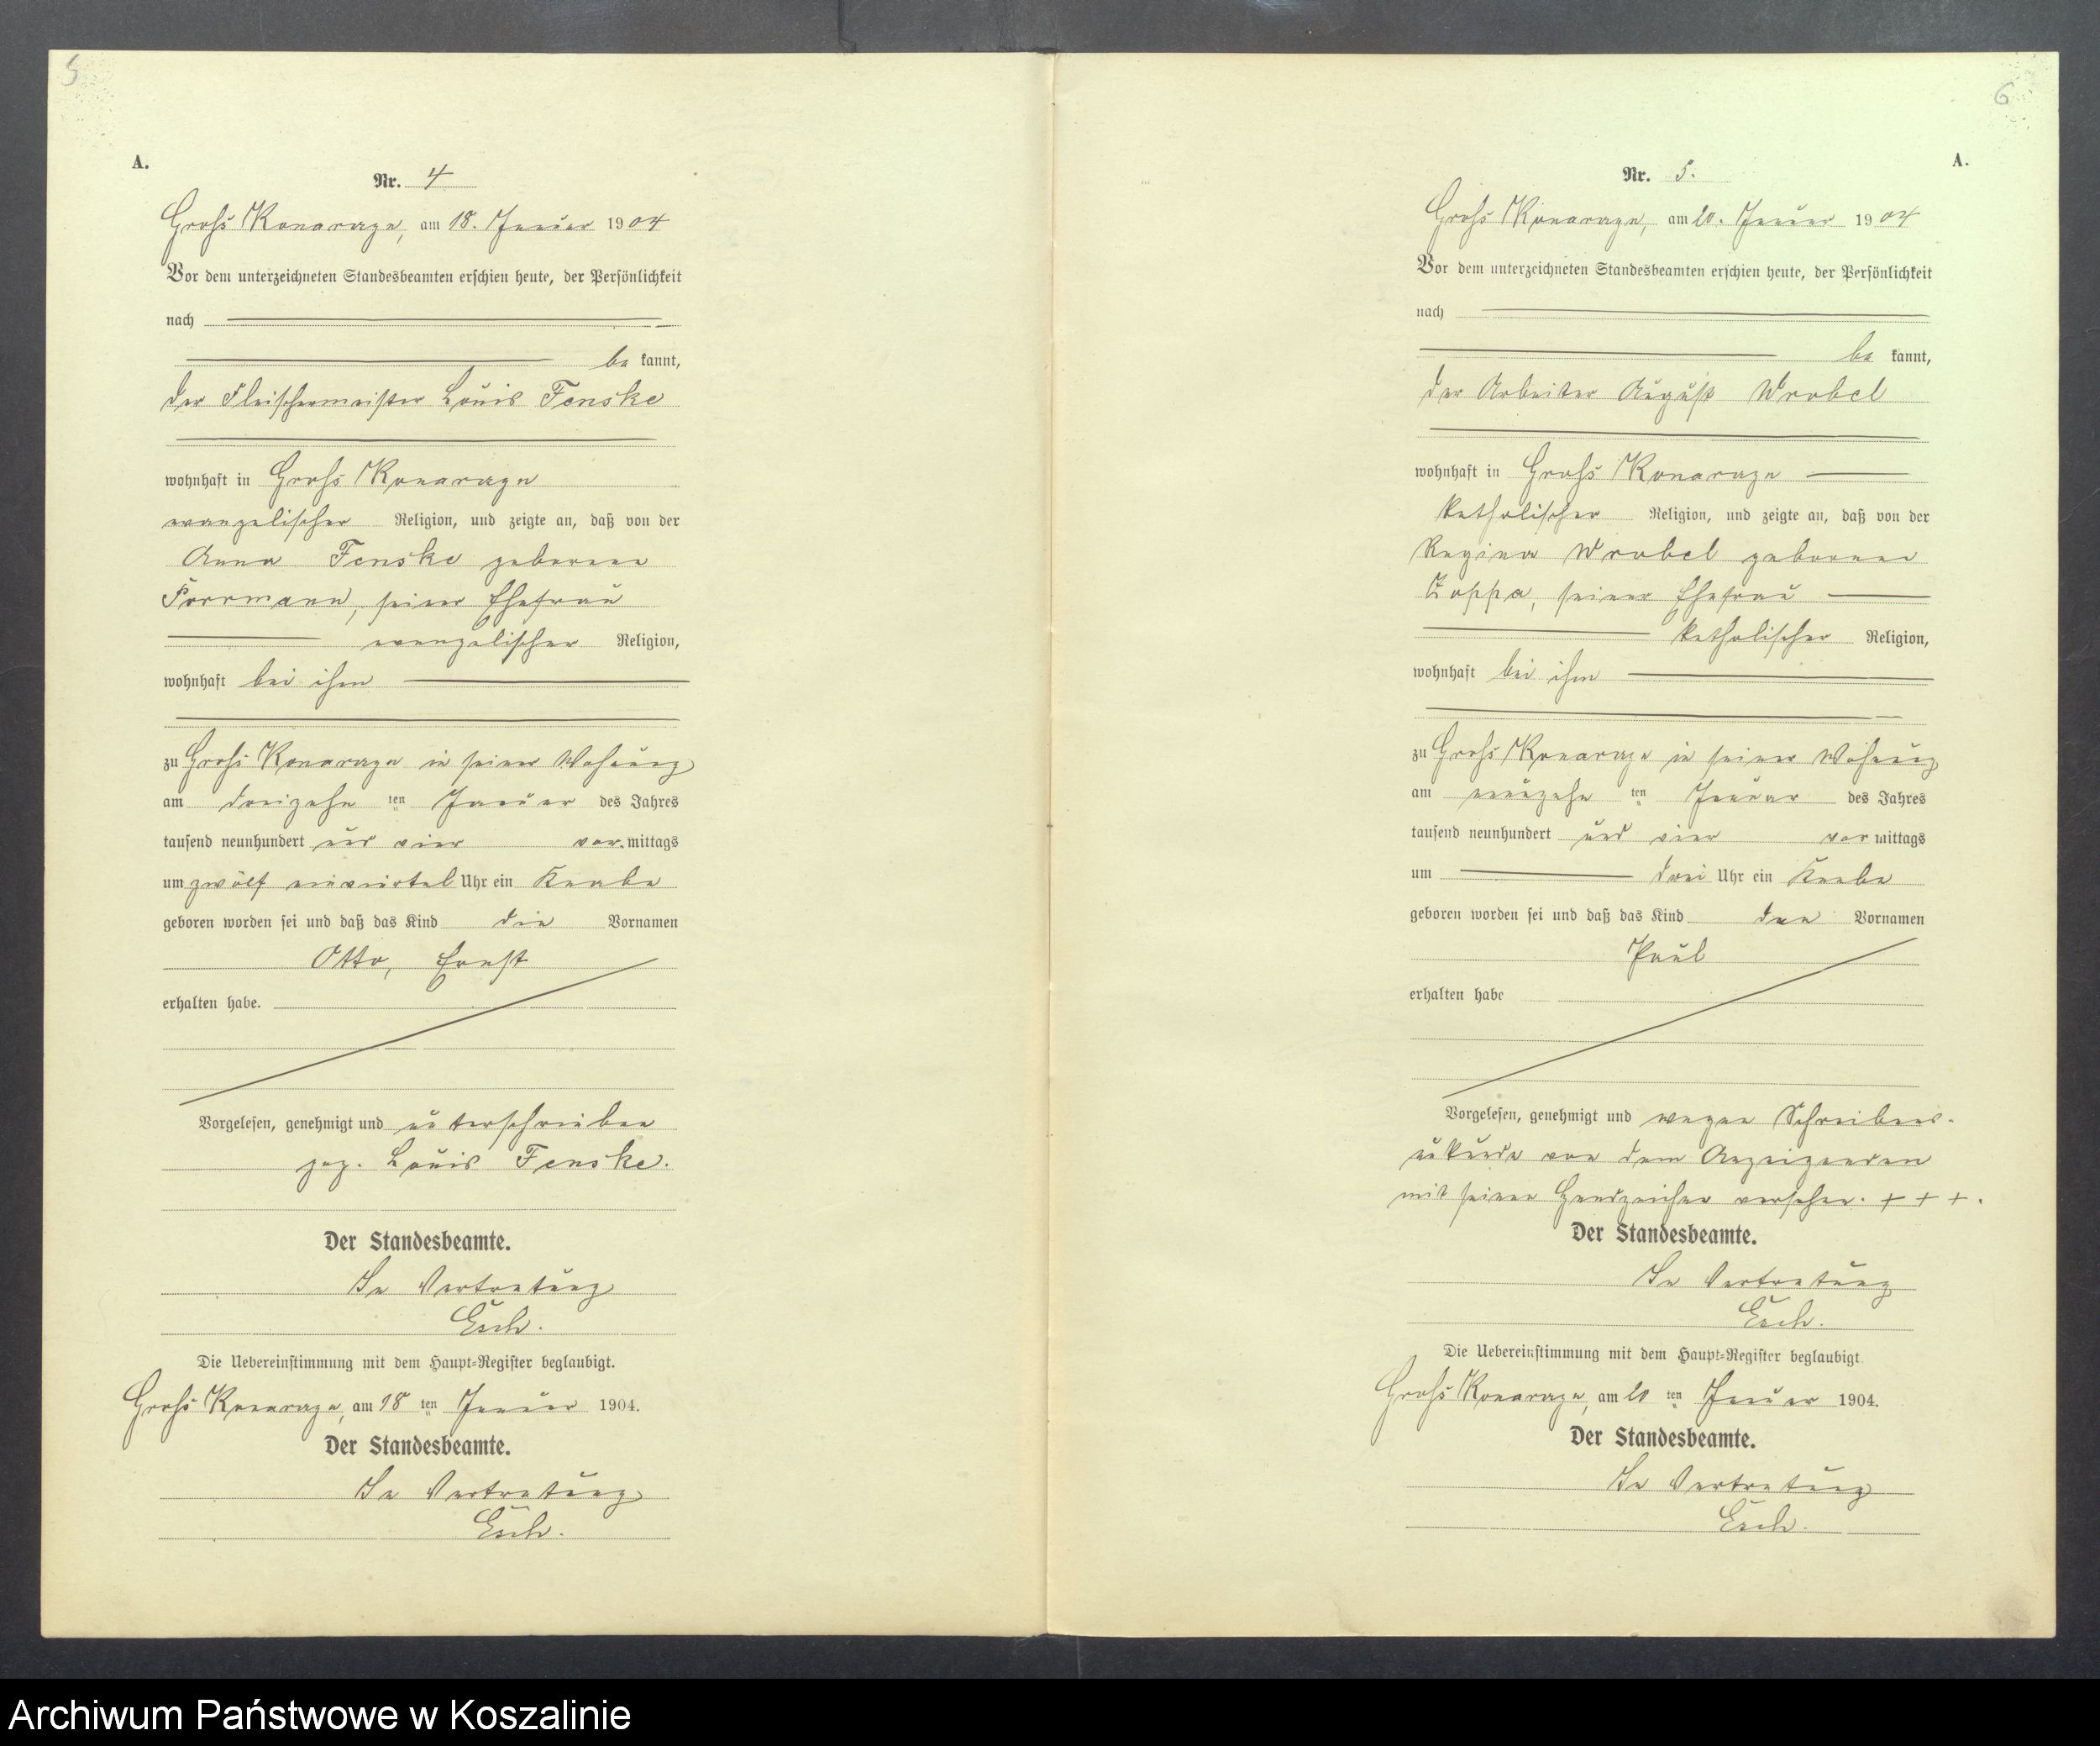 5
A.
Nr. 4
Groß Konarzyn, am 18. Januar 1904
Vor dem unterzeichneten Standesbeamten erschien heute, der Persönlichkeit
nach
be kannt,
der Fleischermeister Louis Fenske
wohnhaft in Groß Konarzyn
evangelischer Religion, und zeigte an, daß von der
Anna Fenske geborene
Porrmann, seiner Ehefrau
evangelischer Religion,
wohnhaft bei ihm
zu Groß Konarzyn in seiner Wohnung
am dreizehn ten Januar des Jahres
tausend neunhundert und vier vor mittags
um zwölf einviertel Uhr ein Knabe
geboren worden sei und daß das Kind die Vornamen
Otto, Ernst
erhalten habe.
Vorgelesen, genehmigt und unterschrieben
gez. Louis Fenske.
Der Standesbeamte.
In Vertretung
Esch.
Die Uebereinstimmung mit dem Haupt-Register beglaubigt.
Groß Konarzyn, am 18 ten Januar 1904.
Der Standesbeamte.
In Vertretung
Esch.
6
A.
Nr. 5.
Groß Konarzyn, am 20. Januar 1904
Vor dem unterzeichneten Standesbeamten erschien heute, der Persönlichkeit
nach
be kannt,
der Arbeiter August Wrobel
wohnhaft in Groß Konarzyn
katholischer Religion, und zeigte an, daß von der
Regina Wrobel geborenen
Zoppa, seiner Ehefrau
katholischer Religion,
wohnhaft bei ihm
zu Groß Konarzyn in seiner Wohnung
am neunzehn ten Januar des Jahres
tausend neunhundert und vier vor mittags
um drei Uhr ein Knabe
geboren worden sei und daß das Kind den Vornamen
Paul
erhalten habe
Vorgelesen, genehmigt und wegen Schreibens-
unkunde von dem Anzeigenden
mit seinen Handzeichen versehen. + + +.
Der Standesbeamte.
In Vertretung
Esch.
Die Uebereinstimmung mit dem Haupt-Register beglaubigt
Groß Konarzyn, am 20 ten Januar 1904.
Der Standesbeamte.
In Vertretung
Esch.
Archiwum Państwowe w Koszalinie